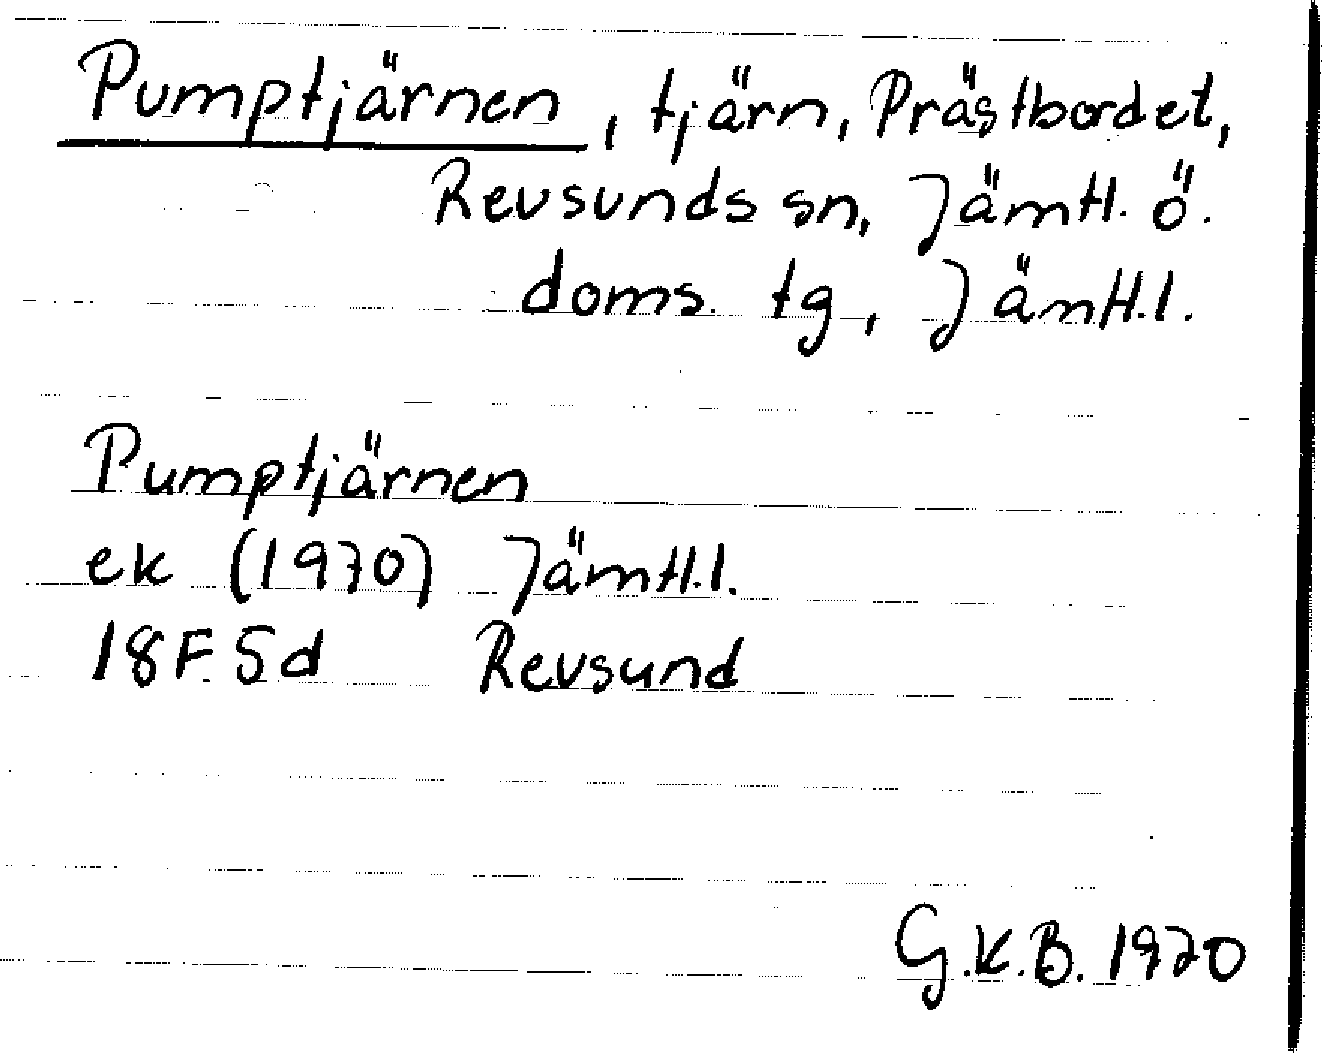 Pumptjärnen, tjärn, Prästbordet,
Revsunds sn, Jämtl. ö.
doms. tg, Jämtl.l.
Pumptjärnen
ek (1970) Jämtl.l.
18F 5d Revsund
G.K.B. 1970